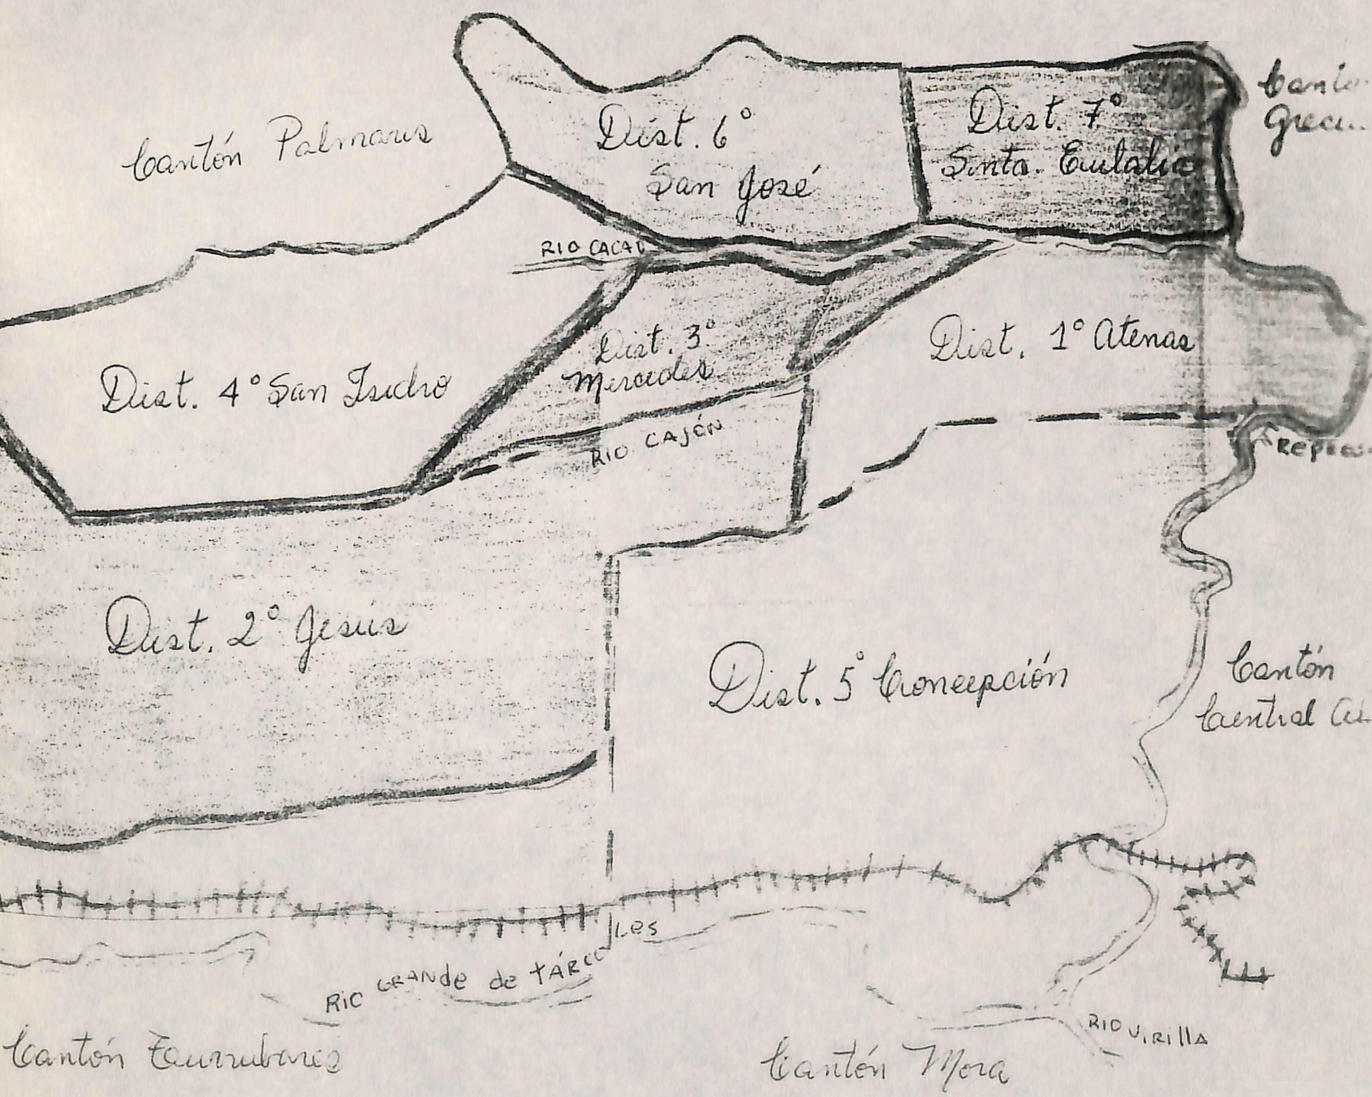 Cantón Palmares
Dist. 6°
San José
Dist. 7°
Santa. Eulalia
RIO CACAO
Dist. 3°
Mercedes
Dist. 1° Atenas
Dist. 4° San Isidro
RIO CAJÓN
Dist. 2° Jesús
Dist. 5° Concepción
Cantón
Central
RIO GRANde de TÁRCOLes
RIO VIRIllA
Cantón Turrubares
Cantón Mora